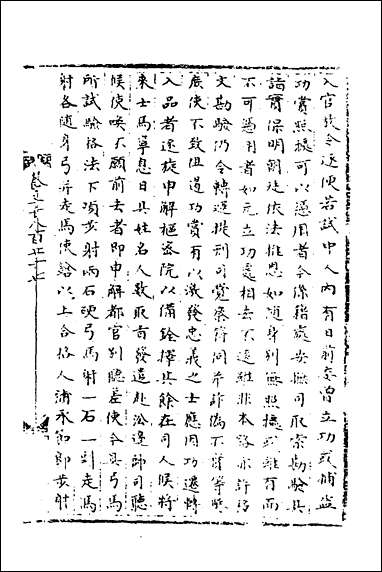 入官致令逐便若試中人内有日前委曾立功或捕盗
功賞照據可以憑用者令條指處安撫司取索勘驗其
詣實保明朝廷依法推恩如随身别無照據或雖有而
不可憑用者如元立功處相去不遠雖非本路亦許移
文勘驗仍令轉運提刑司覺察符同并詐偽不實等
庶使不致阻遏功賞有以激發忠義之士應用功遷轉
入品者逐旋申解樞密院以備銓擇其餘在司人候將
來士馬寧息日具姓名人數取旨發遣赴沿邊帥司聽
候使喚不願前去者即申解都官别聽差使令具弓馬
所試驗格法下項步射兩石硬弓馬射一石一㪷走馬
射各随身弓并走馬使鎗以上合格人補承節郎步射
卷之一千八百七十七